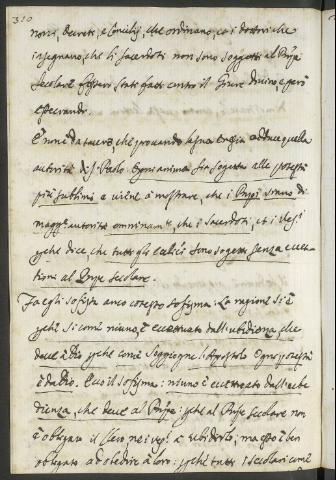 310
noni, Decreti, e Concilij, che ordinano, et i dottori che
insegnano, che li sacerdoti non sono soggetti al Prīpe
secolare fossero stati fatti contro il Giure divino, e però
essecrandi.
È non è da tacere che provando la sua adduce quella
autorità di S. Paolo Ogni anima sia sogetta alle potestà
più sublimi e viene à mostrare, che i Prīpi sono di
magg.r autorità che i sacerdoti, et i
dice, che tutti gli sono sogetti senza eccet-
tione al Prīpe secolare.
Fa egli sofista anco cotesto sofisma: La ragione si è
si come niuno, è eccettuato dall'ubidienza, che
deve à Dio come soggionge l'Apostolo Ogni potestà
è da Dio. Ecco il sofisma: niuno è eccettuato dall'ube
dienza, che deve al Prīpe: al Prīpe secolare non
è obligato il Clero, ne i à ubidirlo; ma esso è ben
obligato ad obedire à loro: tutti i secolari come